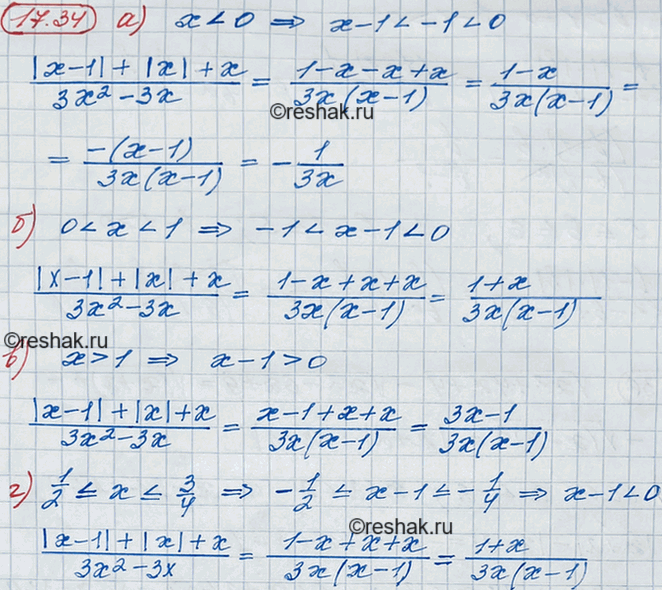 17.34 а) x < 0 ⇒ x-1 < -1 < 0
(|x-1| + |x| + x)/(3x² - 3x) = (1-x-x+x)/(3x(x-1)) = (1-x)/(3x(x-1)) =
©reshak.ru
= (-(x-1))/(3x(x-1)) = -1/(3x)
б) 0 < x < 1 ⇒ -1 < x-1 < 0
(|x-1| + |x| + x)/(3x² - 3x) = (1-x+x+x)/(3x(x-1)) = (1+x)/(3x(x-1))
©reshak.ru
в) x > 1 ⇒ x-1 > 0
(|x-1| + |x| + x)/(3x² - 3x) = (x-1+x+x)/(3x(x-1)) = (3x-1)/(3x(x-1))
г) 1/2 ≤ x ≤ 3/4 ⇒ -1/2 ≤ x-1 ≤ -1/4 ⇒ x-1 < 0
©reshak.ru
(|x-1| + |x| + x)/(3x² - 3x) = (1-x+x+x)/(3x(x-1)) = (1+x)/(3x(x-1))